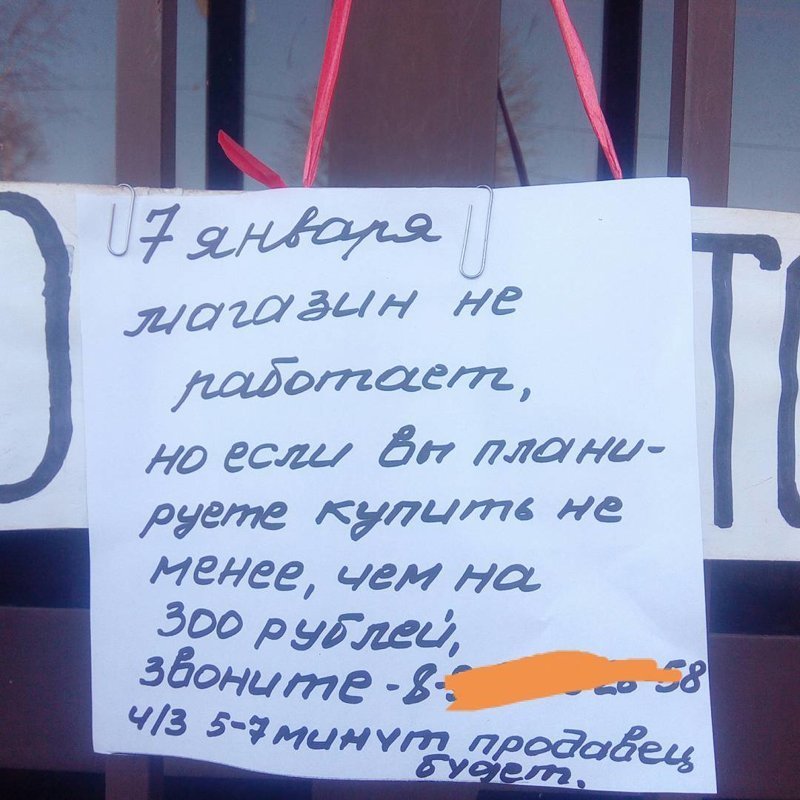 7 января
магазин не
работает,
но если вы плани-
руете купить не
менее, чем на
300 рублей,
звоните - 8-9 28-58
ч/з 5-7 минут продавец
будет.